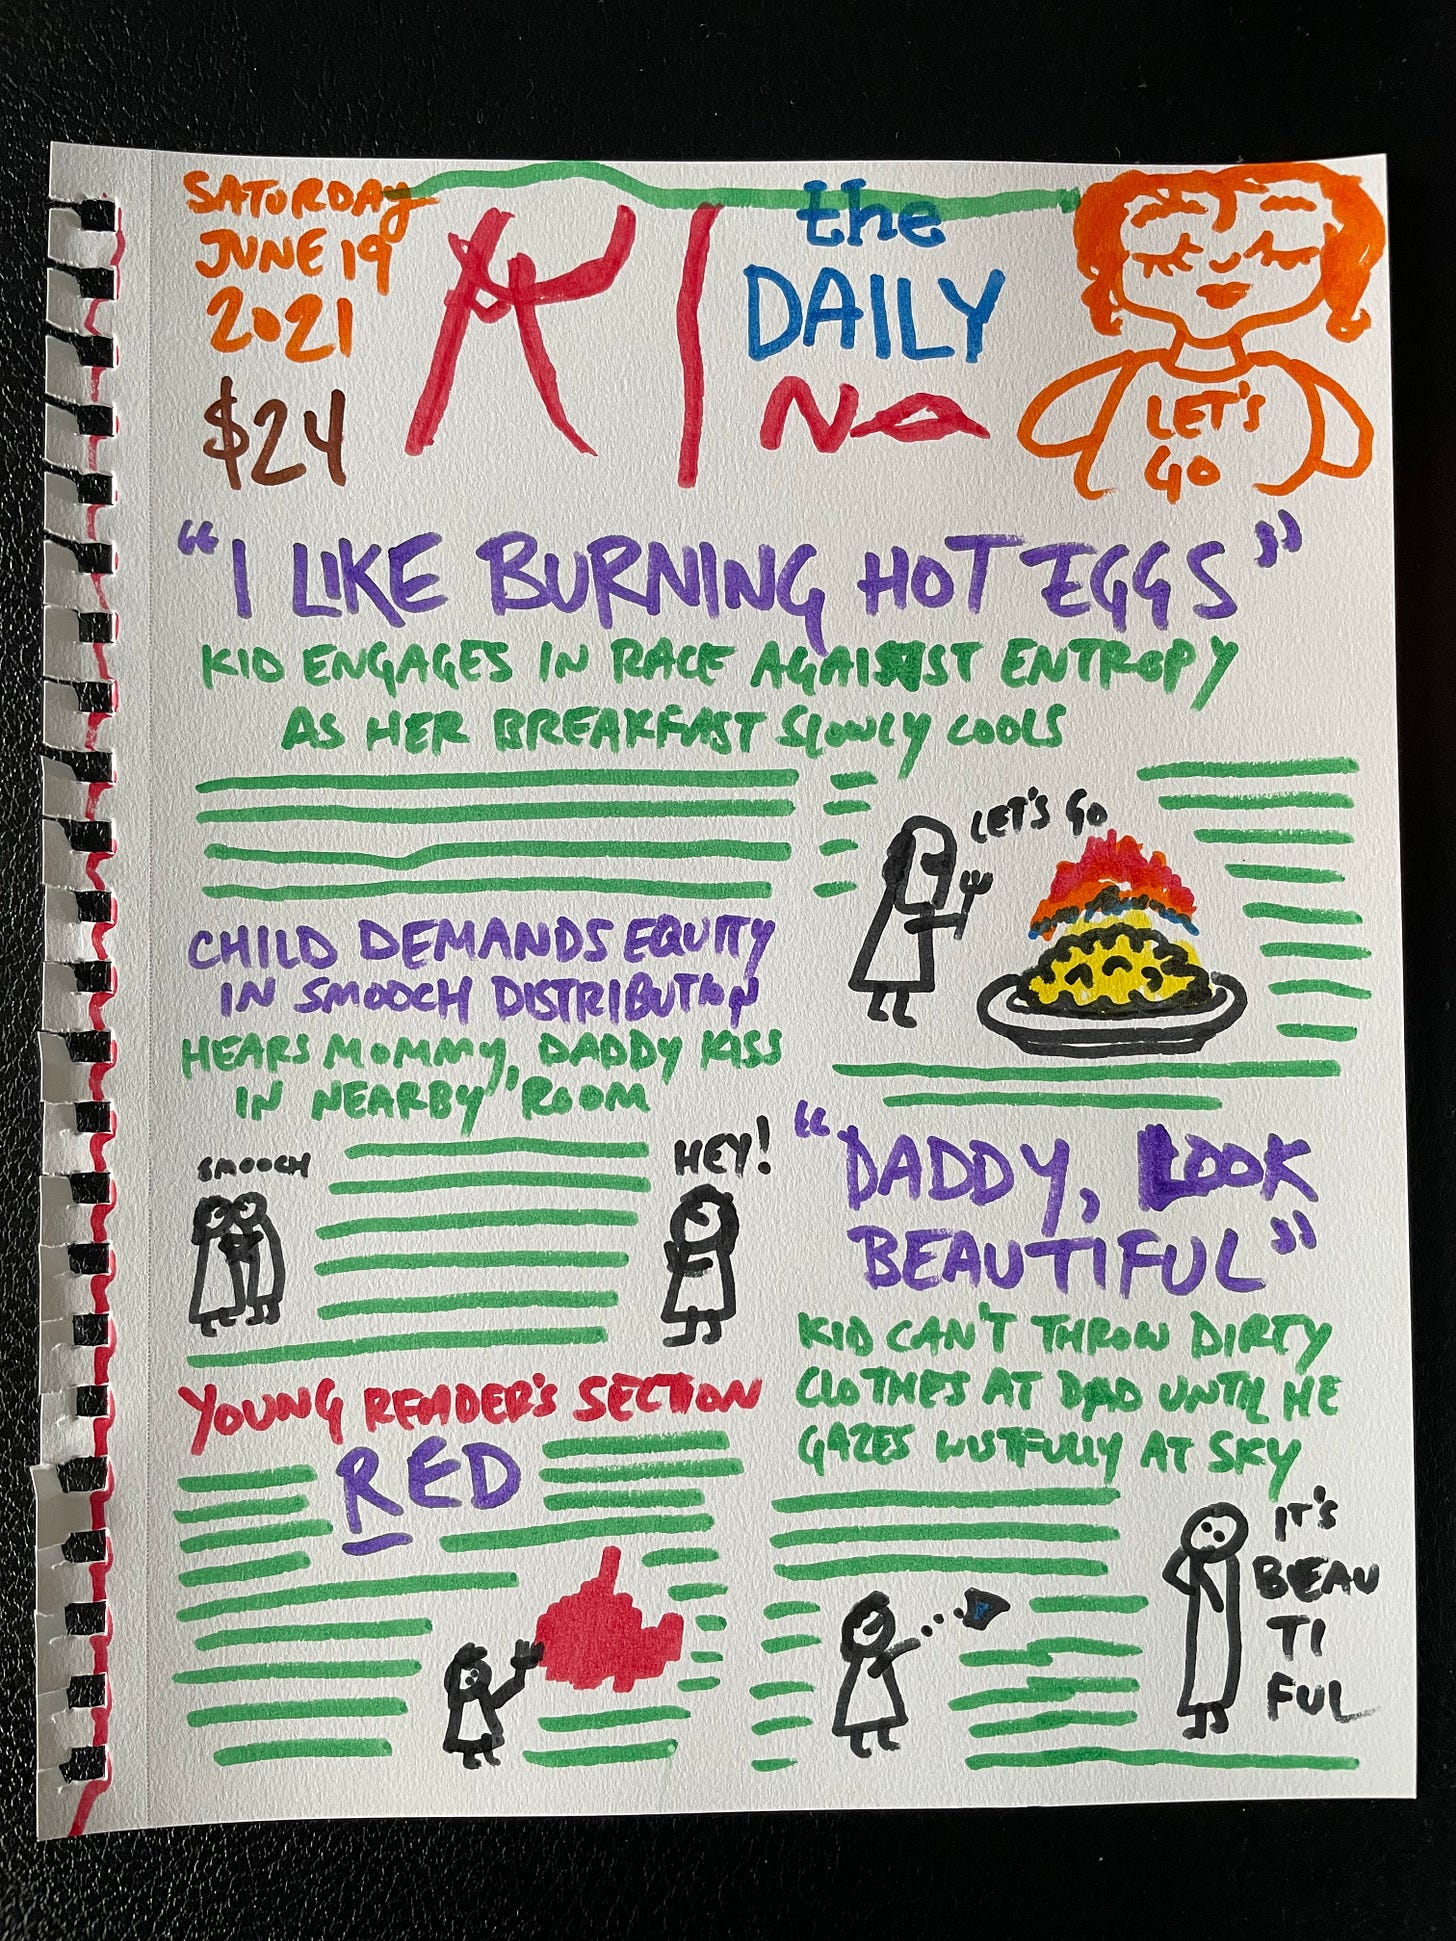 SATURDAY
JUNE 19
2021
$24
the
DAILY
LET'S
GO
"I LIKE BURNING HOT EGGS"
KID ENGAGES IN RACE AGAINST ENTROPY
AS HER BREAKFAST SLOWLY COOLS
LET'S GO
CHILD DEMANDS EQUITY
IN SMOOCH DISTRIBUTION
HEARS MOMMY, DADDY KISS
IN NEARBY ROOM
SMOOCH
HEY!
"DADDY, LOOK
BEAUTIFUL"
KID CAN'T THROW DIRTY
CLOTHES AT DAD UNTIL HE
GAZES WISTFULLY AT SKY
IT'S
BEAU
TI
FUL
YOUNG READER'S SECTION
RED